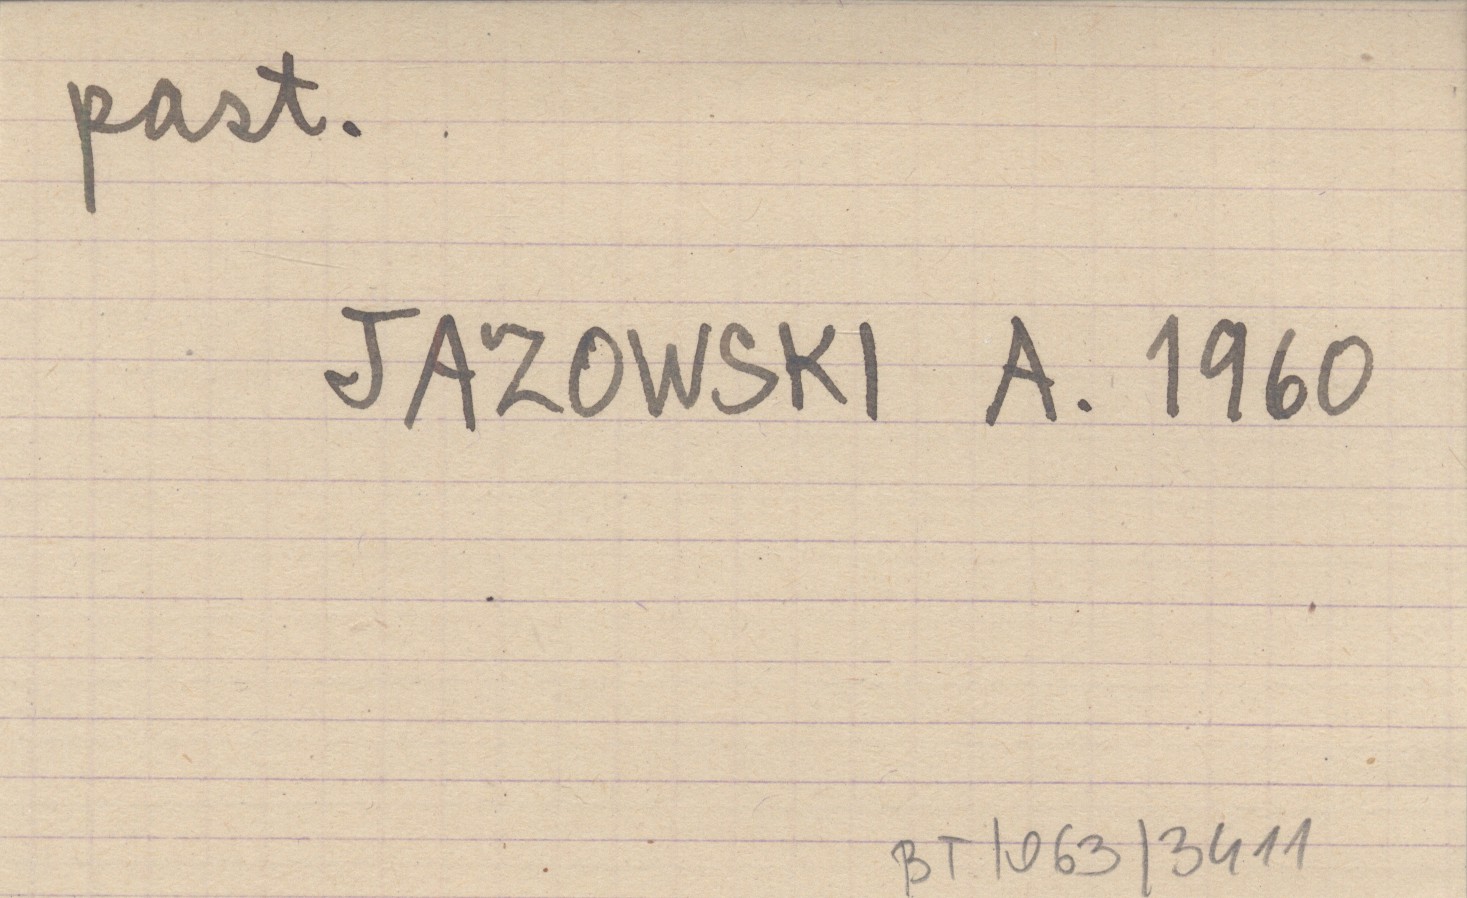 past.
JAZOWSKI A. 1960
BT/063/3411